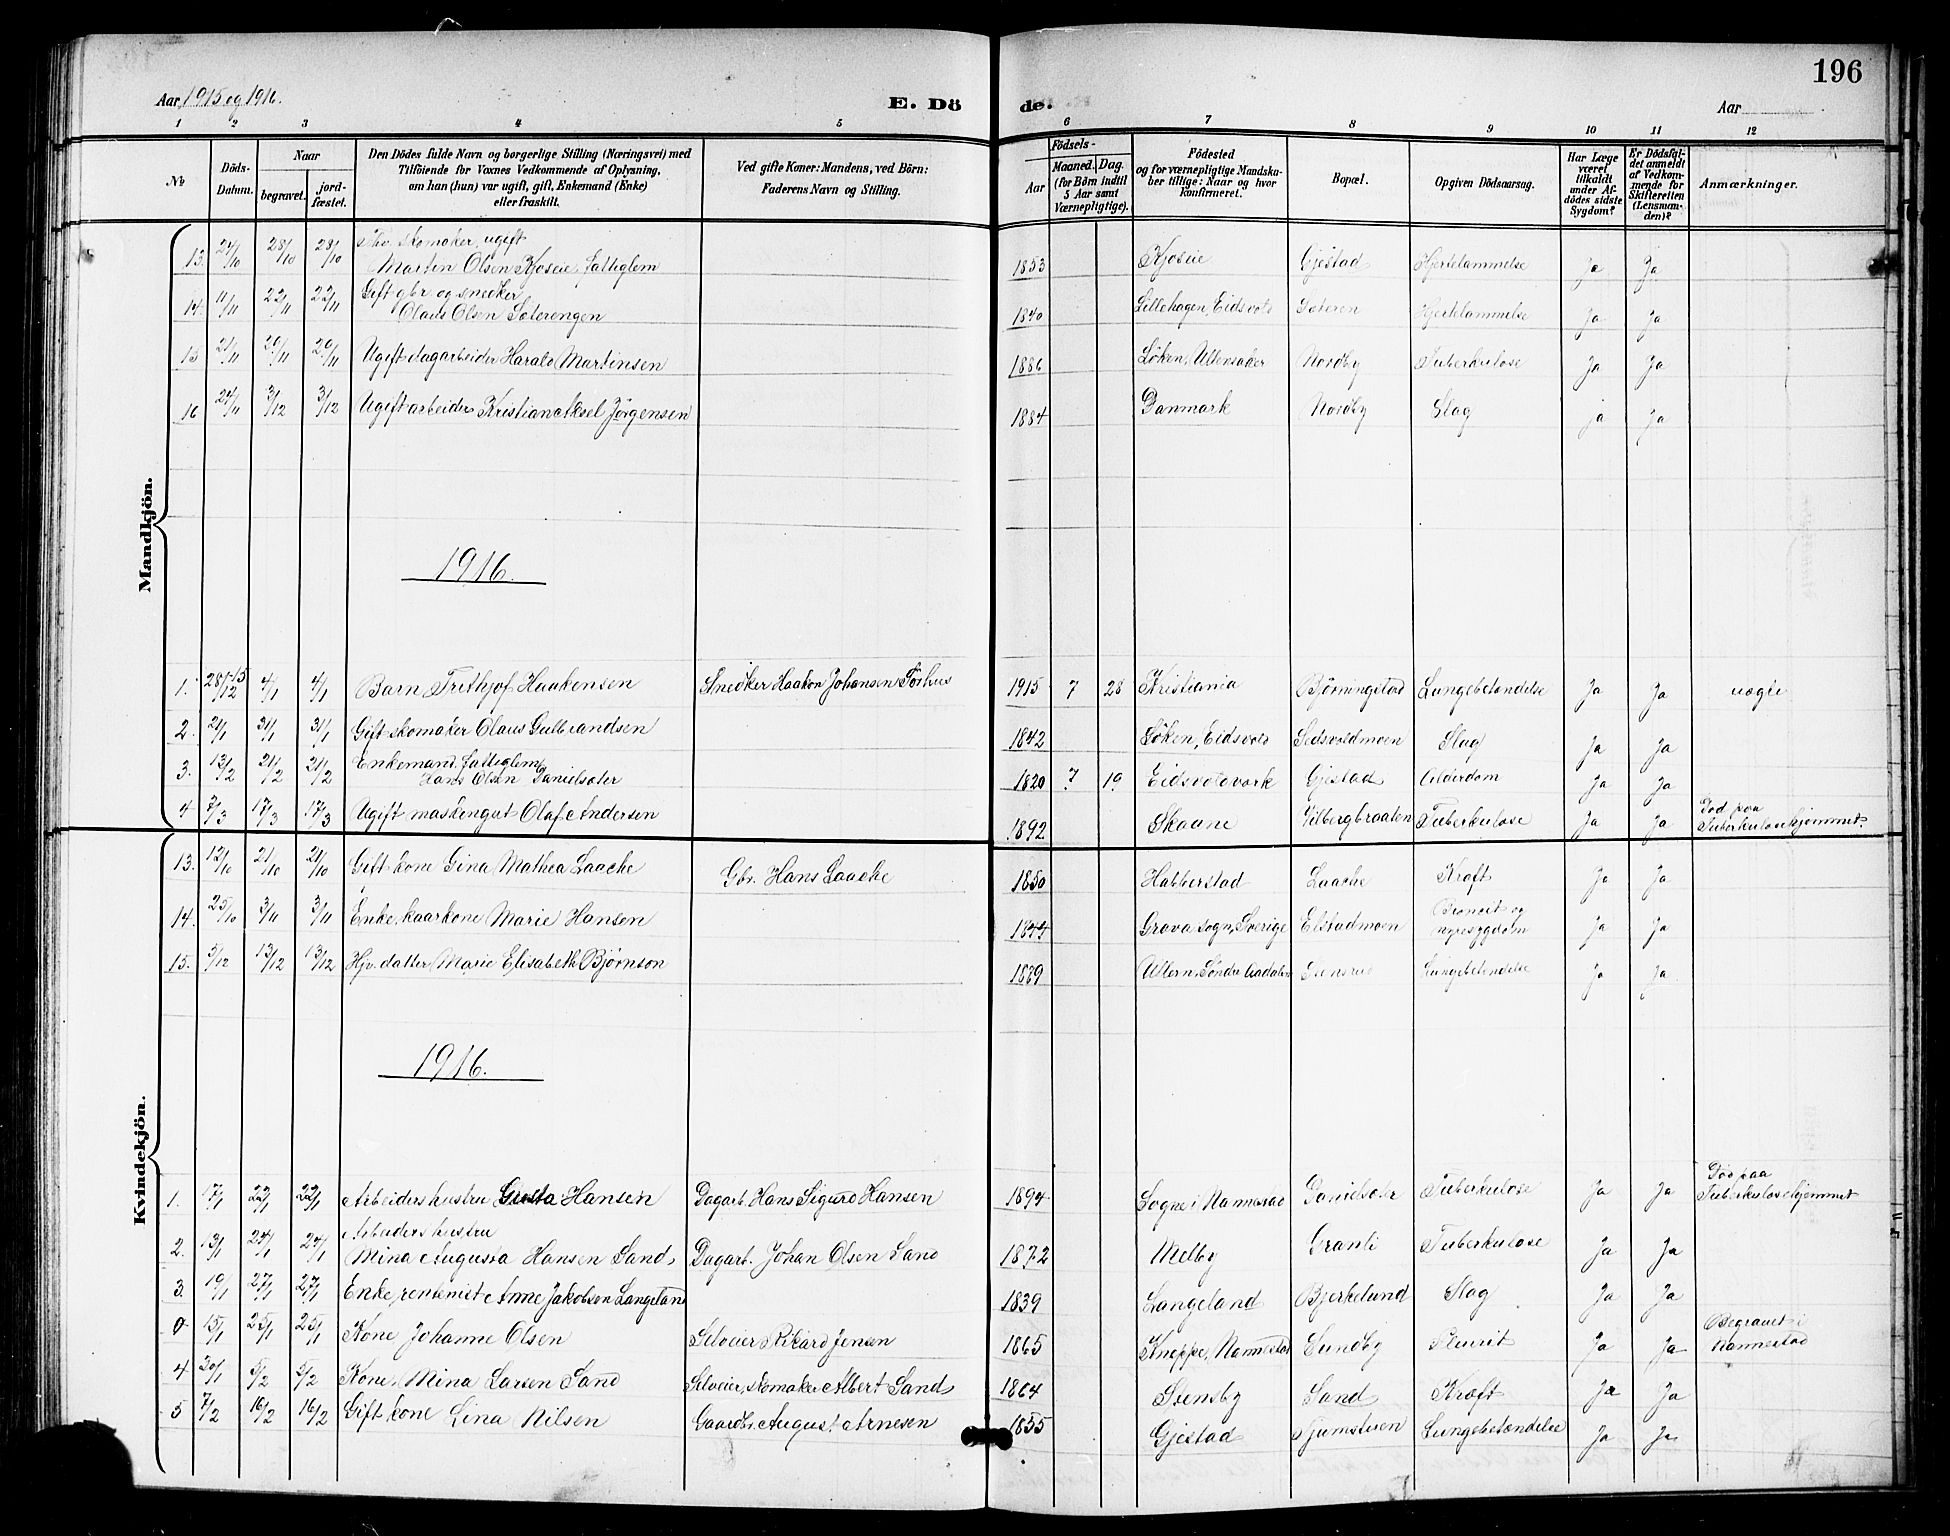 196
Aar 1915 og 1916. E. Dö de. Aar
1 2 3 4 5 6 7 8 9 10 11 12
No
Döds-Datum.
Naar
begravet.
jord-fæstet.
Den Dödes fulde Navn og borgerlige Stilling (Næringsvei) med
Tilföiende for Voxnes Vedkommende af Oplysning,
om han (hun) var ugift, gift, Enkemand (Enke)
eller fraskilt.
Ved gifte Koner: Mandens, ved Börn:
Faderens Navn og Stilling.
Födsels-
Aar
Maaned. Dag.
(for Börn indtil
5 Aar samt
Værnepligtige).
Födested
og for værnepligtige Mandska-
ber tillige: Naar og hvor
konfirmeret.
Bopæl.
Opgiven Dödsaarsag.
Har Læge
været
tilkaldt
under Af-
dödes sidste
Sygdom?
Er Dödsfal-
det anmeldt
af Vedkom-
mende for
Skifteretten
(Lensman-
den)?
Anmærkninger.
Mandkjön.
13. 24/10 28/10 28/10 skomaker, ugift
Martin Olsen Kjoseie, fattiglem 1853 Kjoseie Gjestad Hjertelammelse Ja Ja
14. 11/11 22/11 22/11 Gift gbr. og snedker
Olaus Olsen Sæterengen 1840 Lillehagen, Eidsvold Sæteren Hjertelammelse Ja Ja
15 21/11 29/11 29/11 Ugift dagarbeider Harald Martinsen 1886 Løken, Ullensaker Nordby Tuberkulose Ja Ja
16 24/11 3/12 3/12 Ugift arbeider Kristian Aksel Jørgensen 1884 Danmark Nordby Slag ja Ja
1916.
1. 28/12-15 4/1 4/1 Barn Frithjof Haakensen Snedker Haakon Johansen Sørhus 1915 7 28 Kristiania Bjørningstad Lungebetændelse Ja Ja uægte
2. 21/1 31/1 31/1 Gift skomaker Olaus Gulbrandsen 1842 Løken, Eidsvold Eidsvoldmoen Slag Ja Ja
3. 13/2 21/2 21/2 Enkemand, fattiglem
Hans Olsen Danielsæter 1820 7 19 Eidsvoldværk Gjestad Alderdom Ja Ja
4 7/3 17/3 17/3 Ugift maskengut Olaf Andersen 1892 Skaane Vilbergbraaten Tuberkulose Ja Ja Død paa
Tuberkulosehjemmet.
Kvindekjön.
13. 12/10 21/10 21/10 Gift kone Gina Mathea Laache Gbr. Hans Laache 1850 Habberstad Laache Kræft Ja Ja
14. 25/10 3/11 3/11 Enke, kaarkone Marie Hansen 1844 Grava sogn, Sverige Elstadmoen Broncit og
nyresygdom Ja Ja
15. 5/12 13/12 13/12 Hjv. datter Marie Elisabeth Bjørnson 1889 Søndre Lungebetendelse Ja Ja
1916.
1. 17/1 22/1 22/1 Arbeiders hustru Gusta Hansen Dagarb. Hans Sigurd Hansen 1894 Sogne i Nannestad Danielsæter Tuberkulose Ja Ja Død paa
Tuberkulosehjemmet
2. 13/1 24/1 24/1 Arbeiders hustru
Mina Augusta Hansen Sand Dagarb. Johan Olsen Sand 1872 Melby Granli Tuberkulose Ja Ja
3. 19/1 27/1 27/1 Enke, rentenist Anne Jakobsen Langeland 1839 Langeland Bjerkelund Slag Ja Ja
0 15/1 25/1 25/1 Kone Johanne Olsen Selveier Rikard Jensen 1865 Knappe, Nannestad Sundby Pleurit Ja Ja Begravet i
Nannestad
4 30/1 5/2 5/2 Kone, Mina Larsen Sand Selveier, skomaker Albert Sand 1864 Stensby Sand Kræft Ja Ja
5 7/2 16/2 16/2 Gift kone Lina Nilsen Gaardbr. August Arnesen 1855 Gjestad Lungebetændelse Ja Ja